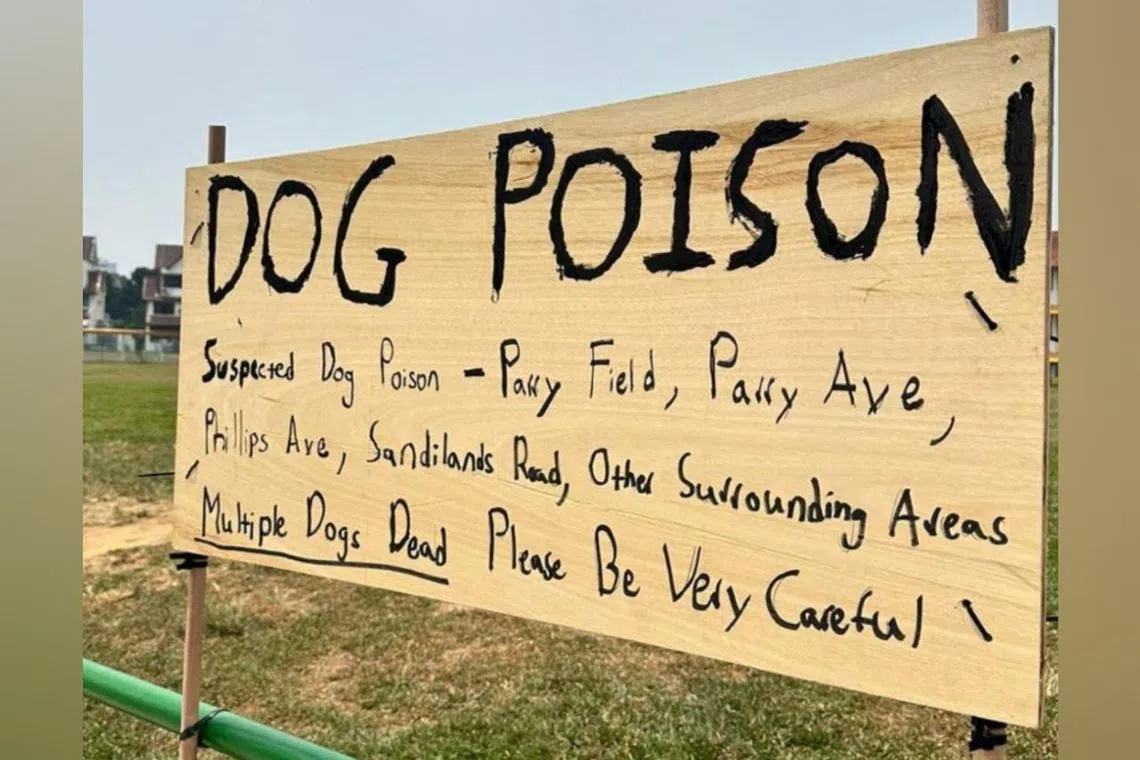 DOG POISON
Suspected Dog Poison - Parry Field, Parry Ave,
Phillips Ave, Sandilands Road, Other Surrounding Areas
Multiple Dogs Dead Please Be Very Careful